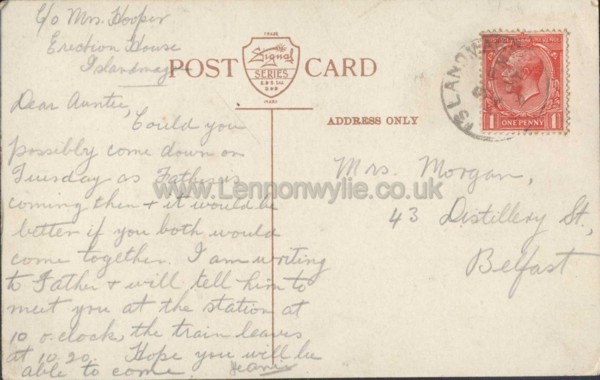 c/o Mrs. Hooper
Erection House
Islandmagee
POST CARD
TRADE
Signal
SERIES
E & S Ltd.
DUB
MARK
ISLANDMAGEE
ONE PENNY
1 1
Dear Auntie,
Could you
possibly come down on
Tuesday as Father is
coming then & it would be
better if you both would
come together. I am writing
to Father & will tell him to
meet you at the station at
10 o.clock, the train leaves
at 10.20. Hope you will be
able to come. Jeanie
ADDRESS ONLY
Mrs. Morgan,
43 Distillery St,
Belfast
www.Lennonwylie.co.uk